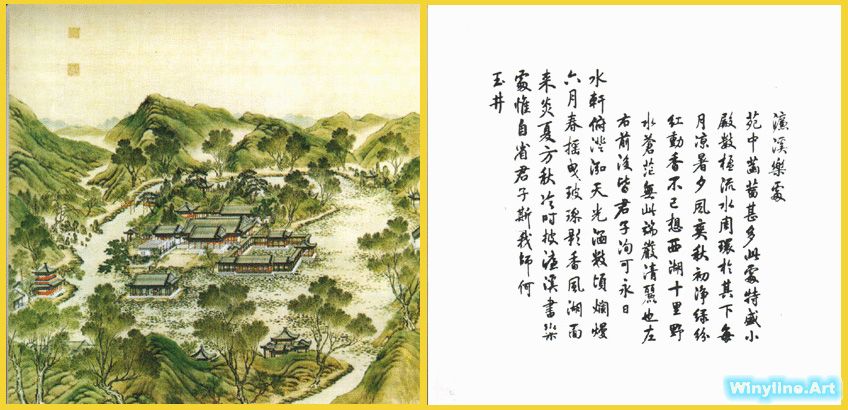 濂溪樂處
苑中菡萏甚多此處特盛小
殿數楹流水周環於其下每
月凉暑夕風爽秋初浄綠紛
紅動香不已想西湖十里野
水蒼茫無此端嚴清麗也左
右前後皆君子洵可永日
水軒俯澄泓天光涵數頃爛熳
六月春摇曳玻瓈影香風湖面
来炎夏方秋冷時披濂溪書樂
處惟自省君子斯我師何
玉井
Winyline.Art